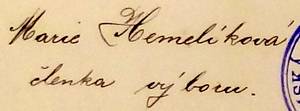 Marie Hemelíková
členka výboru.